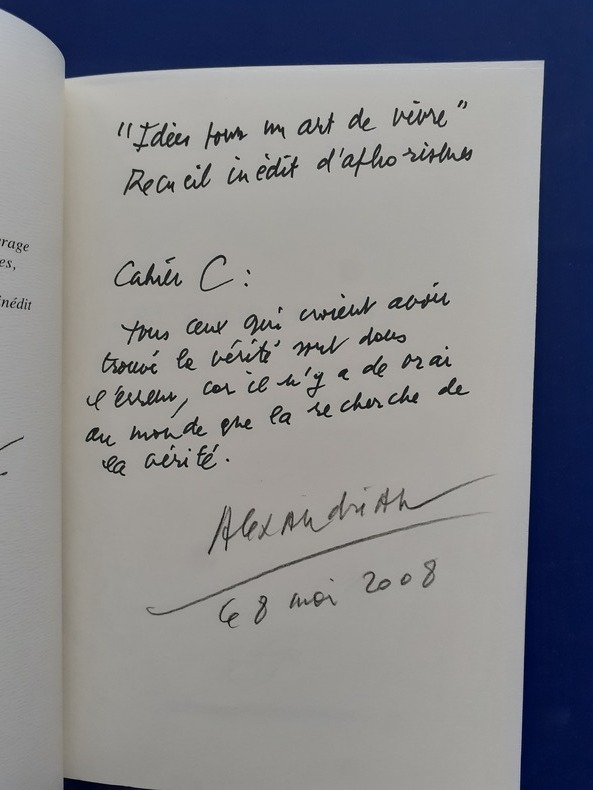 rage
es,
inédit
"Idées pour un art de vivre"
Recueil inédit d'aphorismes
Cahier C :
Tous ceux qui croient avoir
trouvé la vérité sont dans
l'erreur, car il n'y a de vrai
au monde que la recherche de
la vérité.
Alexandrian
le 8 mai 2008